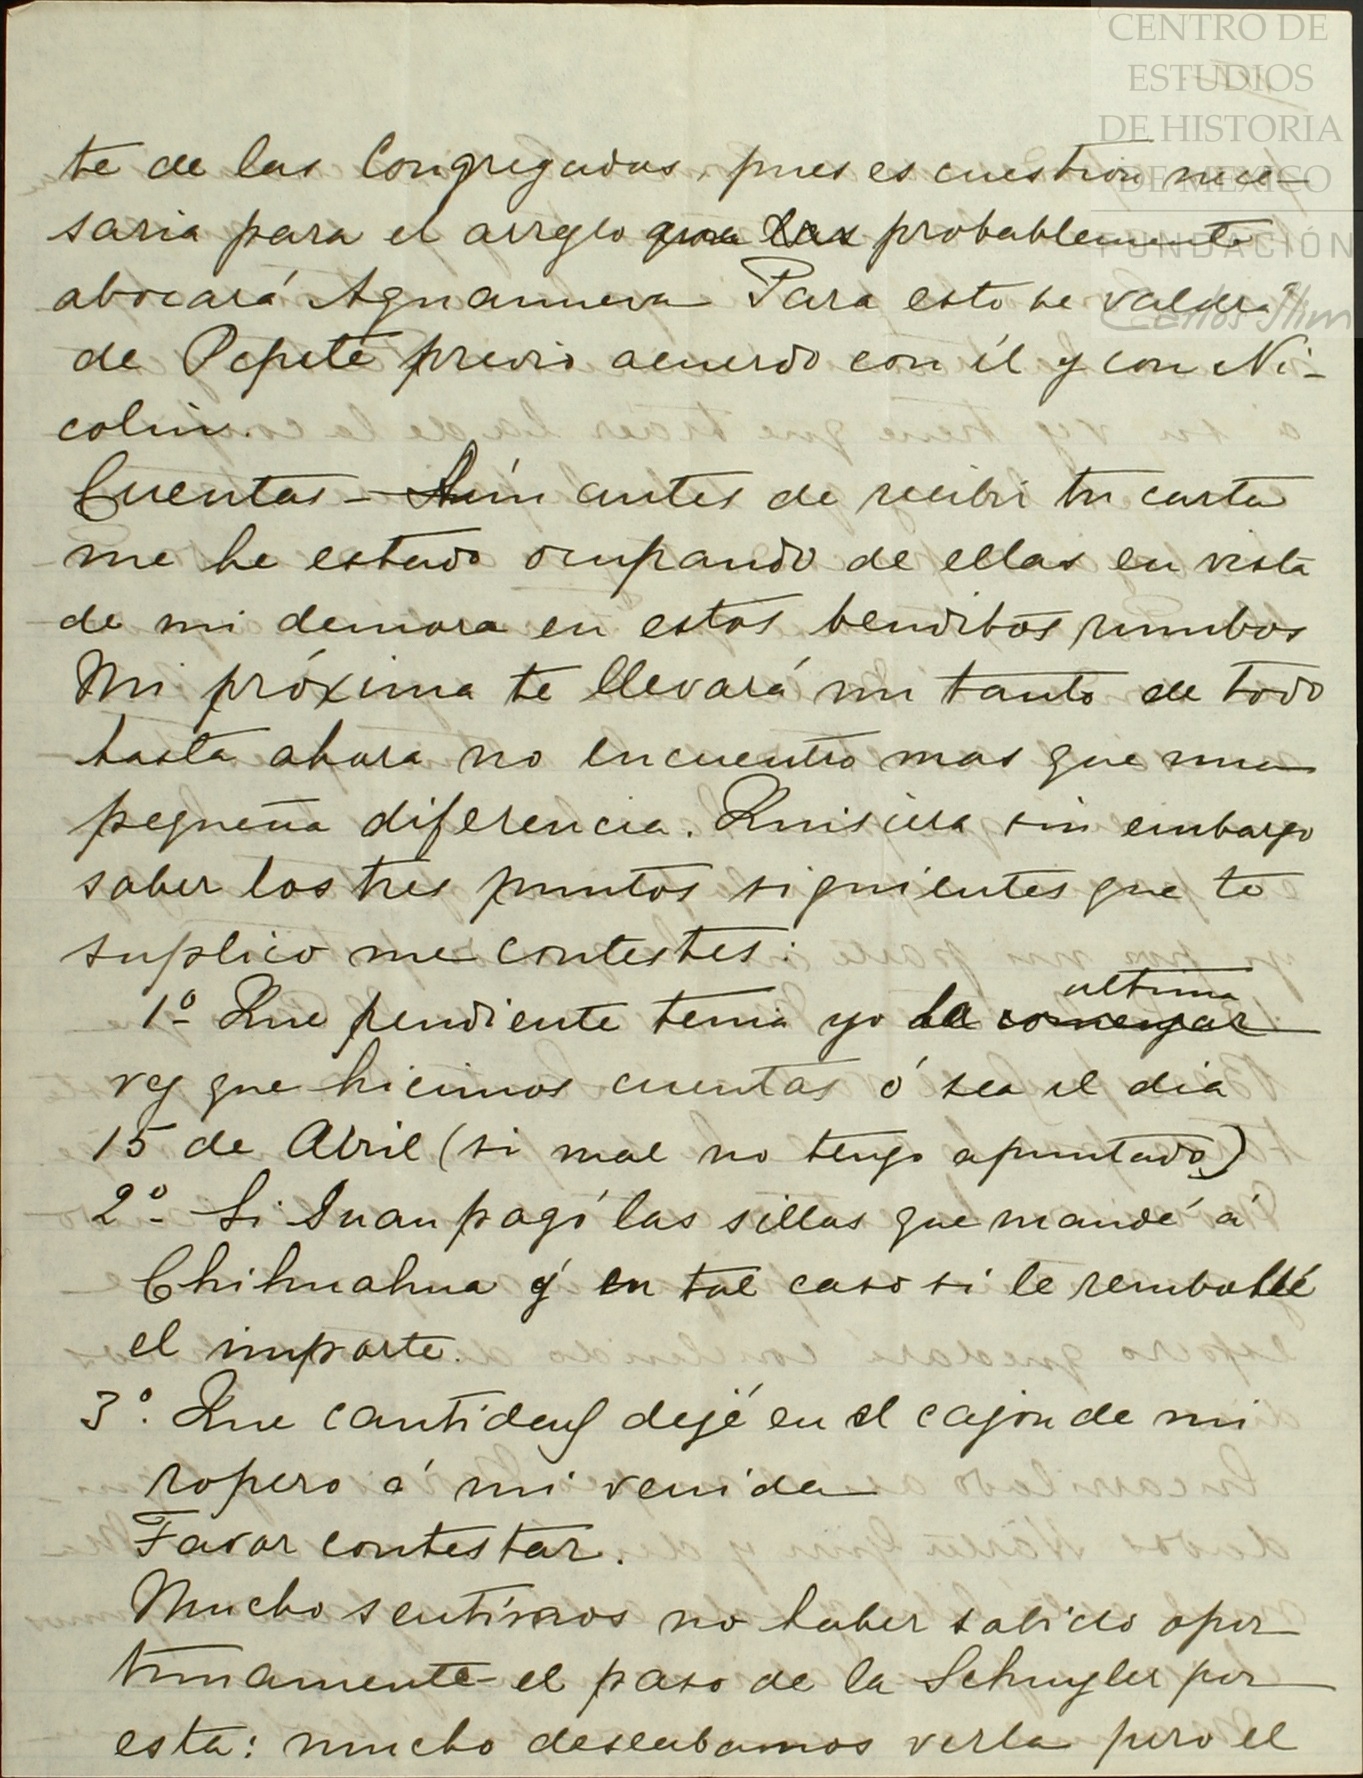 CENTRO DE
ESTUDIOS
DE HISTORIA
DE MÉXICO
FUNDACIÓN
Carlos Slim
te de las Congregadas, pues es cuestion nece-
saria para el arreglo que las probablemente
abocará Aguanueva Para esto se valdrá
de Pepete previo acuerdo con él y con Ni-
colin.
Cuentas - Aún antes de recibir tu carta
me he estado ocupando de ellas en vista
de mi demora en estos benditos rumbos
Mi próxima te llevará un tanto de todo
hasta ahora no encuentro mas que una
pequeña diferencia. Quisiera sin embargo
saber los tres puntos siguientes que te
suplico me contestes:
ultima
1º Que pendiente tenia yo la comenzar
vez que hicimos cuentas ó sea el dia
15 de Abril (si mal no tengo apuntado)
2º- Si Juan pagó las sillas que mandé á
Chihuahua y en tal caso si le rembolsé
el importe.
3º. Que cantidad dejé en el cajon de mi
ropero á mi venida
Favor contestar.
Mucho sentimos no haber sabido opor
tunamente el paso de la Schuyler por
esta: mucho deseabamos verla pero el